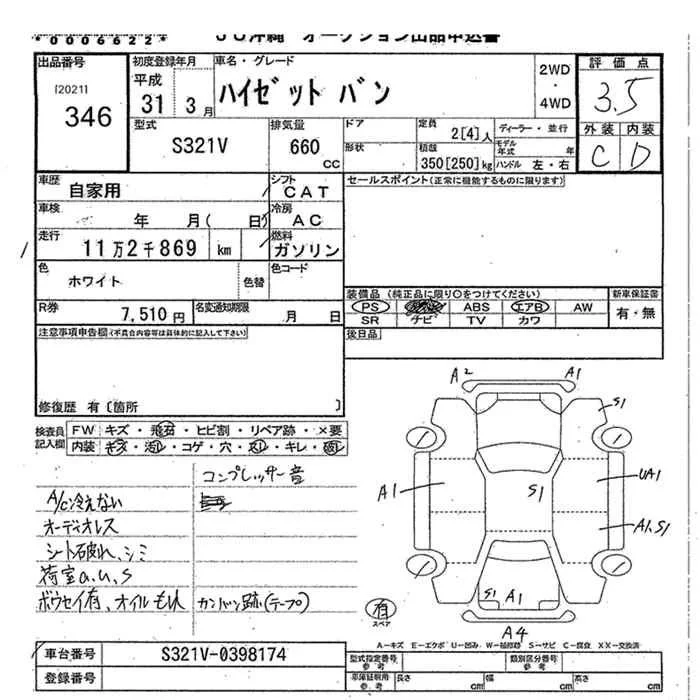 *0006622*
JU沖縄 オークション出品申込書
出品番号
[2021]
346
初度登録年月
平成
31 3月
車名・グレード
ハイゼット バン
2WD
・
4WD
評価点
3.5
外装 内装
C D
型式
S321V
排気量
660
cc
ドア
形状
定員
2[4]人
積載
350[250]kg
ディーラー・並行
モデル年式 年
ハンドル 左・右
車歴
自家用
シフト
CAT
車検
年 月( 日)
冷房
AC
走行
11万2千869 km
燃料
ガソリン
色
ホワイト
色替
色コード
R券
7,510円
名変通知期限
月 日
セールスポイント(正常に機能するものに限ります)
装備品 (純正品に限り○をつけてください)
PS ABS エアB AW
SR ナビ TV カワ
新車保証書
有・無
後日品
注意事項申告欄(不具合内容等は具体的に記入して下さい)
修復歴 有〔箇所 〕
検査員
記入欄
FW キズ・飛石・ヒビ割・リペア跡・×要
内装 キズ・汚レ・コゲ・穴・スレ・キレ・破レ
コンプレッサー音
A/C冷えない
オーディオレス
シート破れ、シミ
荷室a,u,s
ボウセイ有、オイルもれ
カンバン跡(テープ)
A2 A1
S1
A1
S1
UA1
A1.S1
S1 A1
A4
有
スペア
A-キズ E-エクボ U-凹み W-補修跡 S-サビ C-腐食 XX-交換済
車台番号
S321V-0398174
登録番号
型式指定番号
参考
類別区分番号
参考
車庫証明用
参考
長さ cm
幅 cm
高さ cm